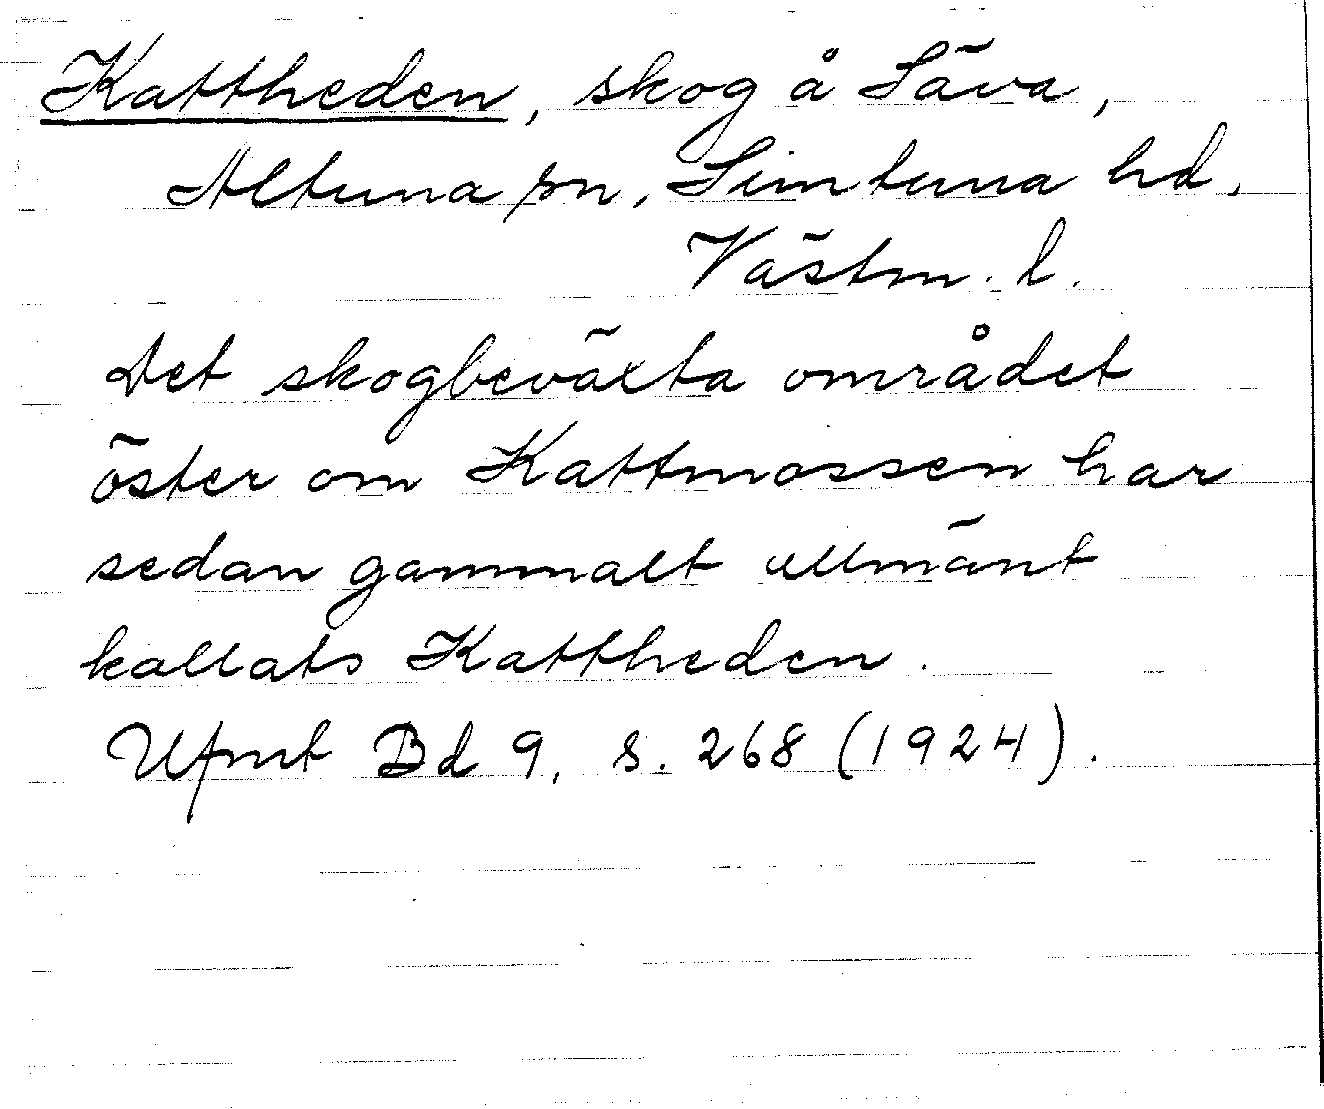 Kattheden, skog å Säva,
Altuna sn, Simtuna hd,
Västm. l.
Det skogbeväxta området
öster om Kattmossen har
sedan gammalt allmänt
kallats Kattheden.
Ufmt Bd 9, s. 268 (1924).